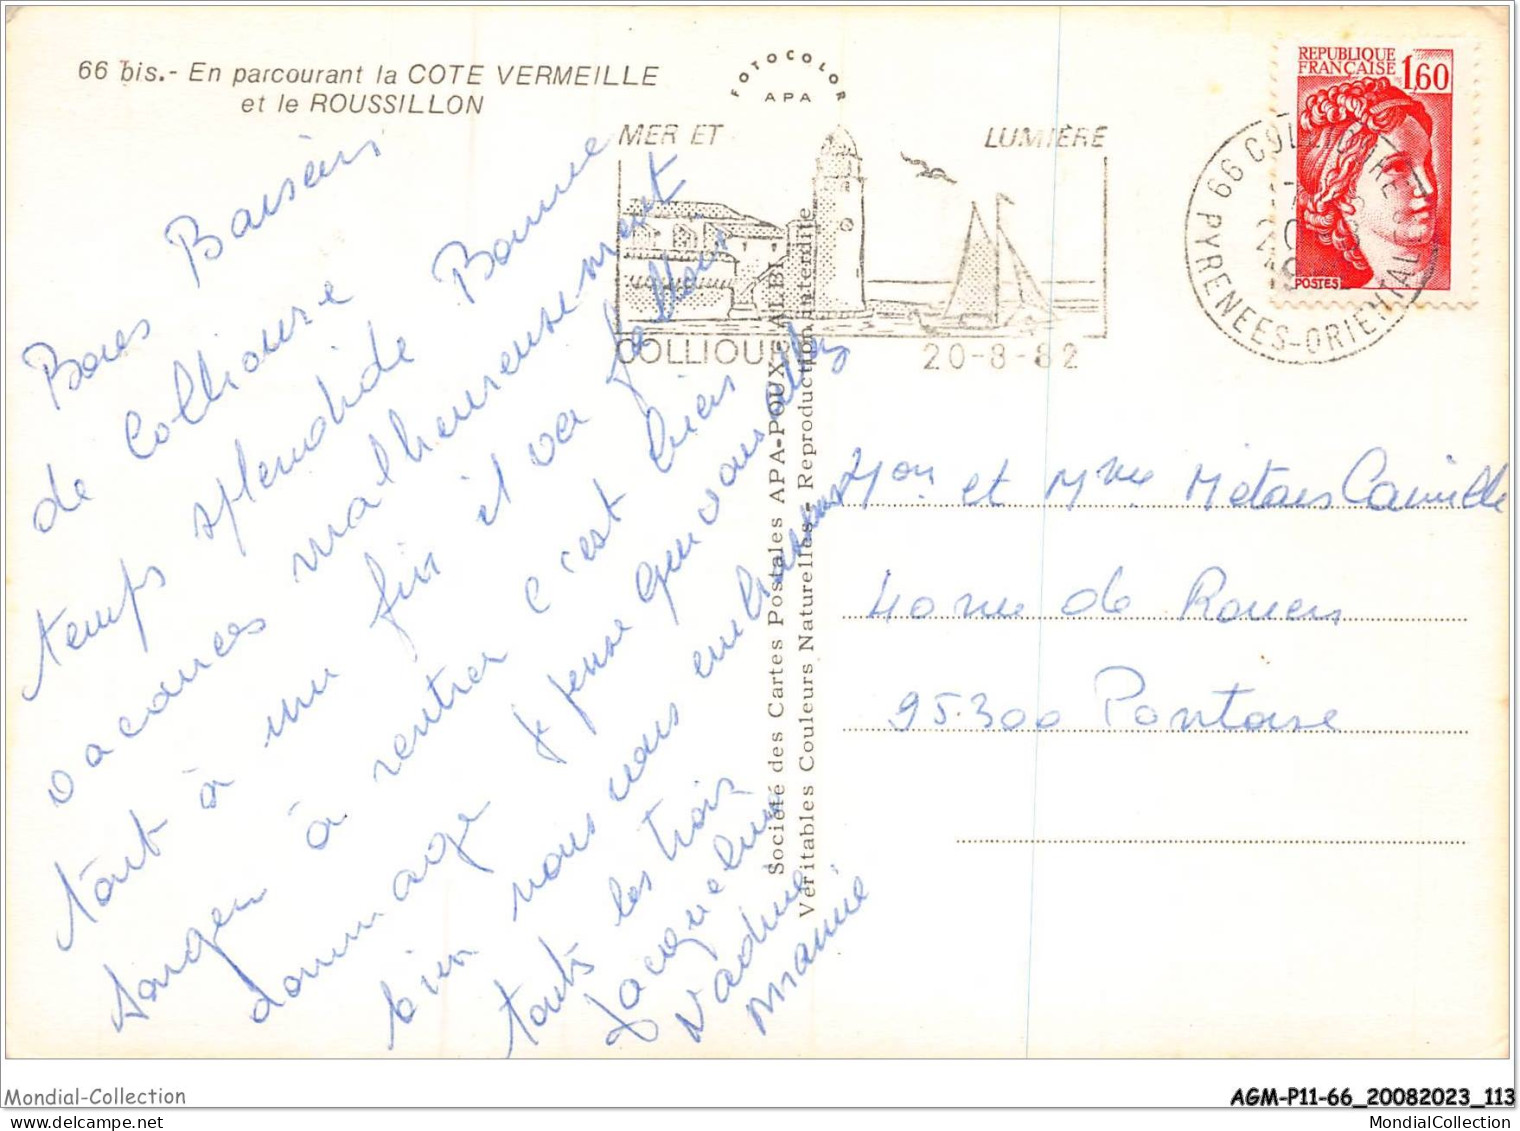 66 bis.- En parcourant la COTE VERMEILLE
et le ROUSSILLON
FOTOCOLOR
APA
MER ET LUMIÈRE
COLLIOURE 20-8-82
REPUBLIQUE
FRANÇAISE 1,60
POSTES
66 COLLIOURE
PYRENEES-ORIENTALES
Bons Baisers
de Collioure
temps splendide Bonne
vacances malheureusement
tout à une fin il va falloir
songer à rentrer c'est bien
dommage Je pense que vous allez
bien nous vous embrassons
touts les trois
Jacqueline
Nadine
Mamie
Société des Cartes Postales APA-POUX - ALBI
Véritables Couleurs Naturelles - Reproduction interdite
Mon et Mme Métais Camille
40 rue de Rouen
95.300 Pontoise
Mondial-Collection
AGM-P11-66_20082023_113
MondialCollection